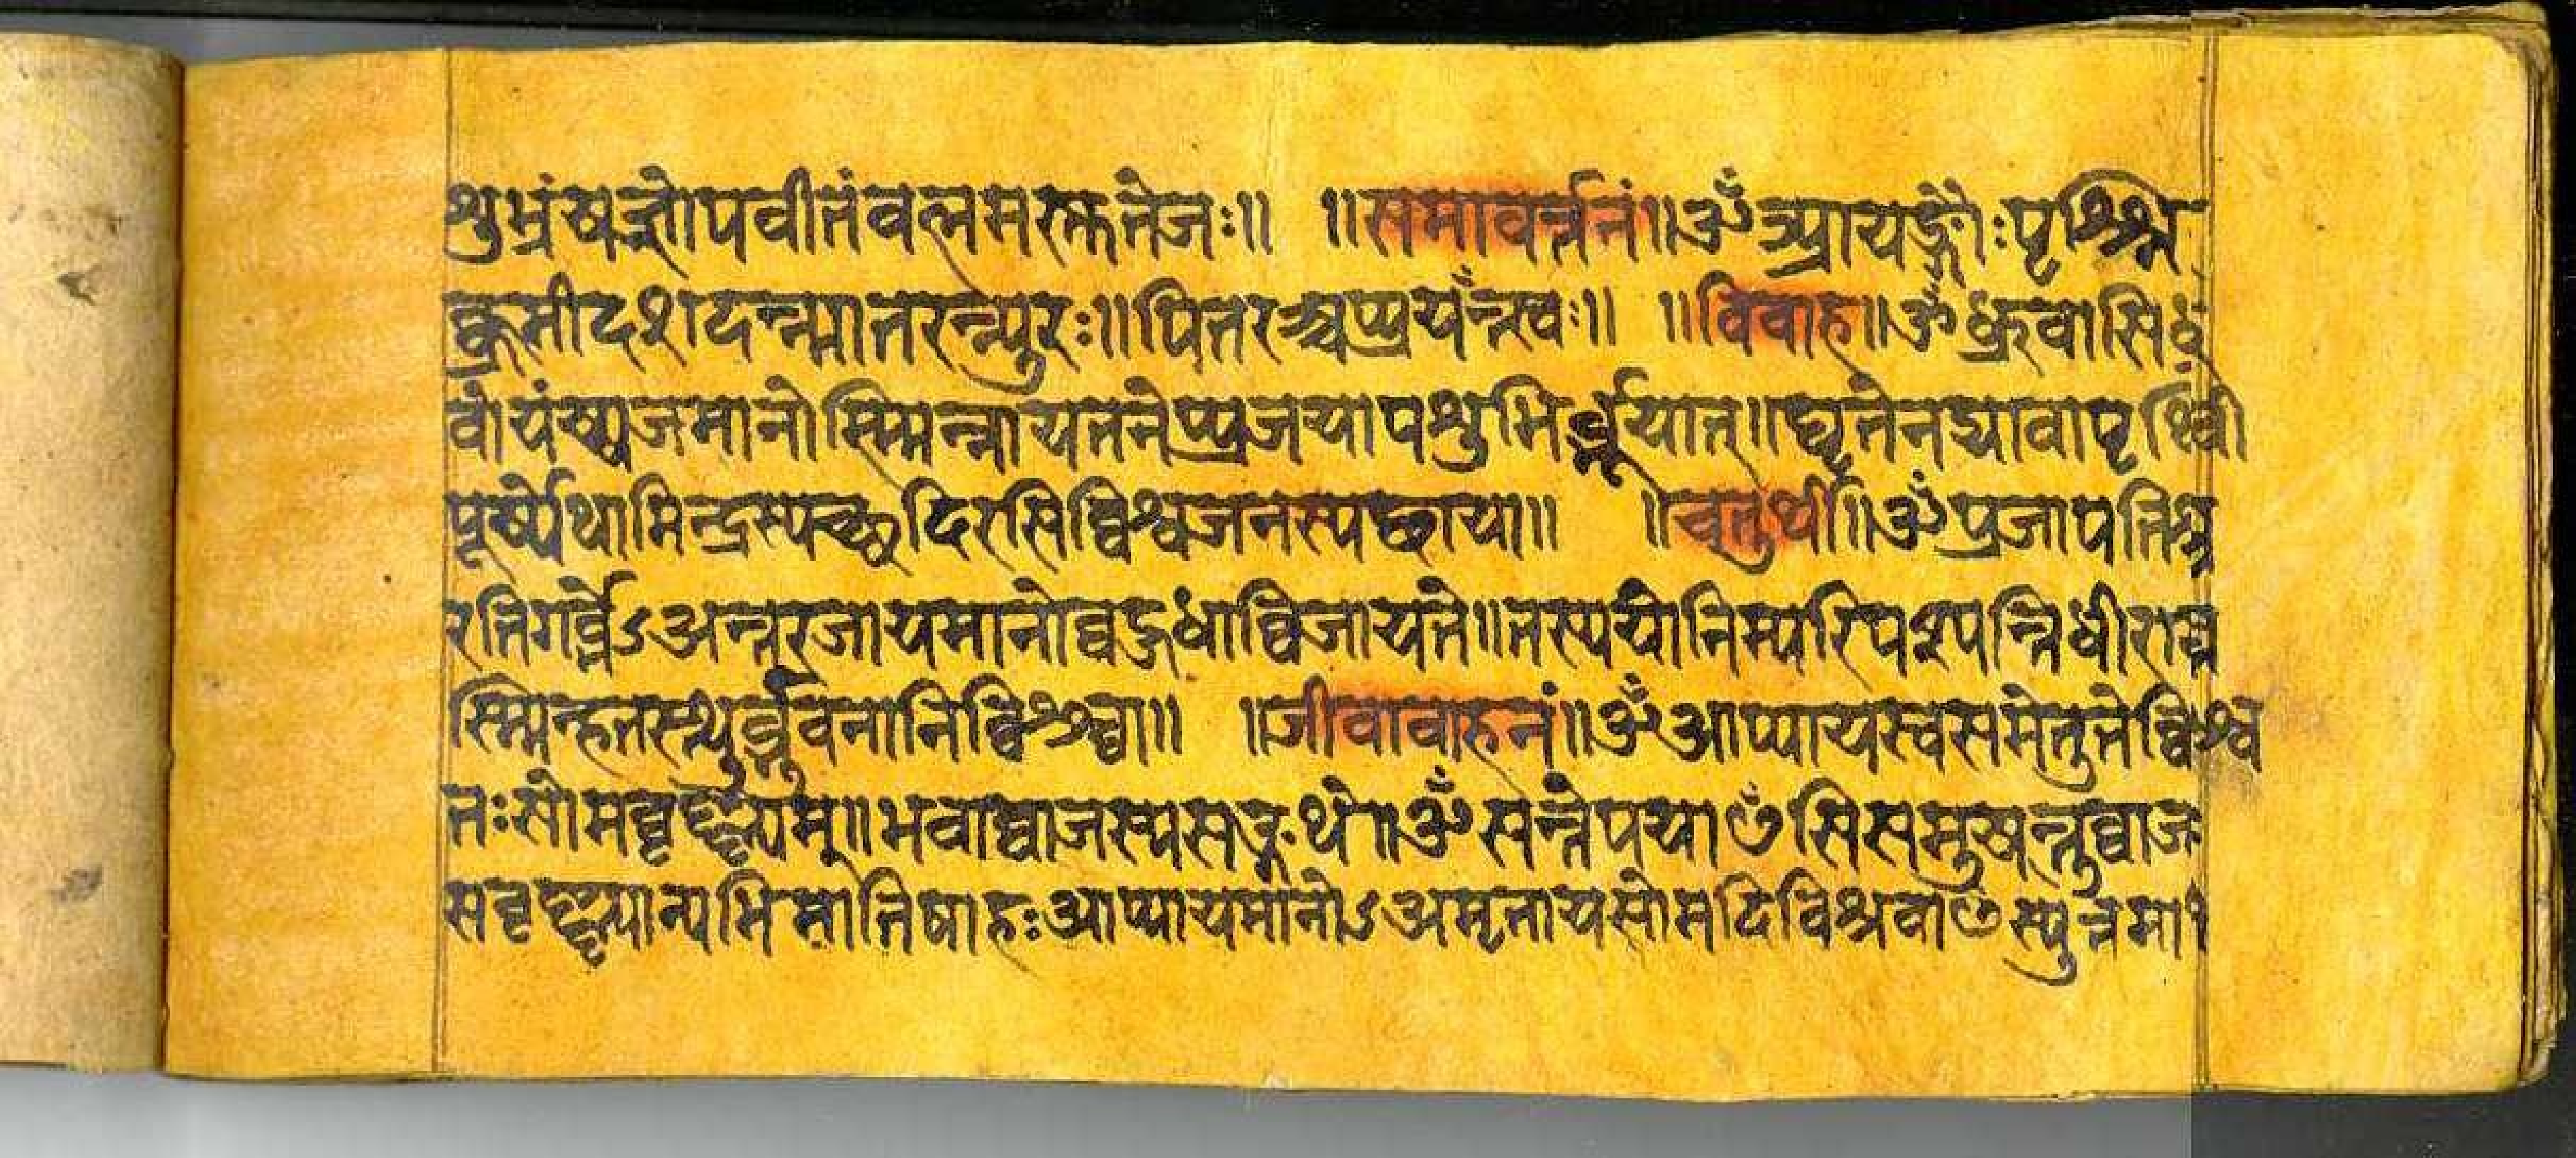 शुभ्रंय्यज्ञोपवीतंवलमस्क्ततेजः॥ ॥समावर्त्तनं॥ॐआयङ्गौःपृश्श्नि
क्क्रमीदशदन्न्मातरन्न्पुरः॥पितरञ्चप्प्रयँन्त्स्वः॥ ॥विवाह॥ॐध्रुवासिध्रु
वोयंय्यजमानोस्म्मिन्न्नायतनेप्प्रजयापशुभिर्ब्भूयात्॥घृतेनद्यावापृथिवी
पूर्य्येथामिन्द्रस्यच्छदिरसिव्विश्वजनस्यछाया॥ ॥चतुर्थी॥ॐप्रजापतिश्च
रतिगर्ब्भेऽअन्तरजायमानोबहुधाव्विजायते॥तस्ययोनिम्परिपश्यन्तिधीरास्त
स्म्मिन्हतस्त्थुर्ब्भुवनानिव्विश्श्वा॥ ॥जीवावाहनं॥ॐआप्यायस्वसमेतुतेव्विश्व
तःसोमव्वृष्ण्यम्॥भवाव्वाजस्यसङ्गथे॥ॐसन्तेपयाꣳसिसमुय्यन्तुव्वाज
सवृष्ण्यान्यभिमातिषाहःआप्यायमानोऽअमृतायसोमदिविश्रवाꣳस्युत्तमानि